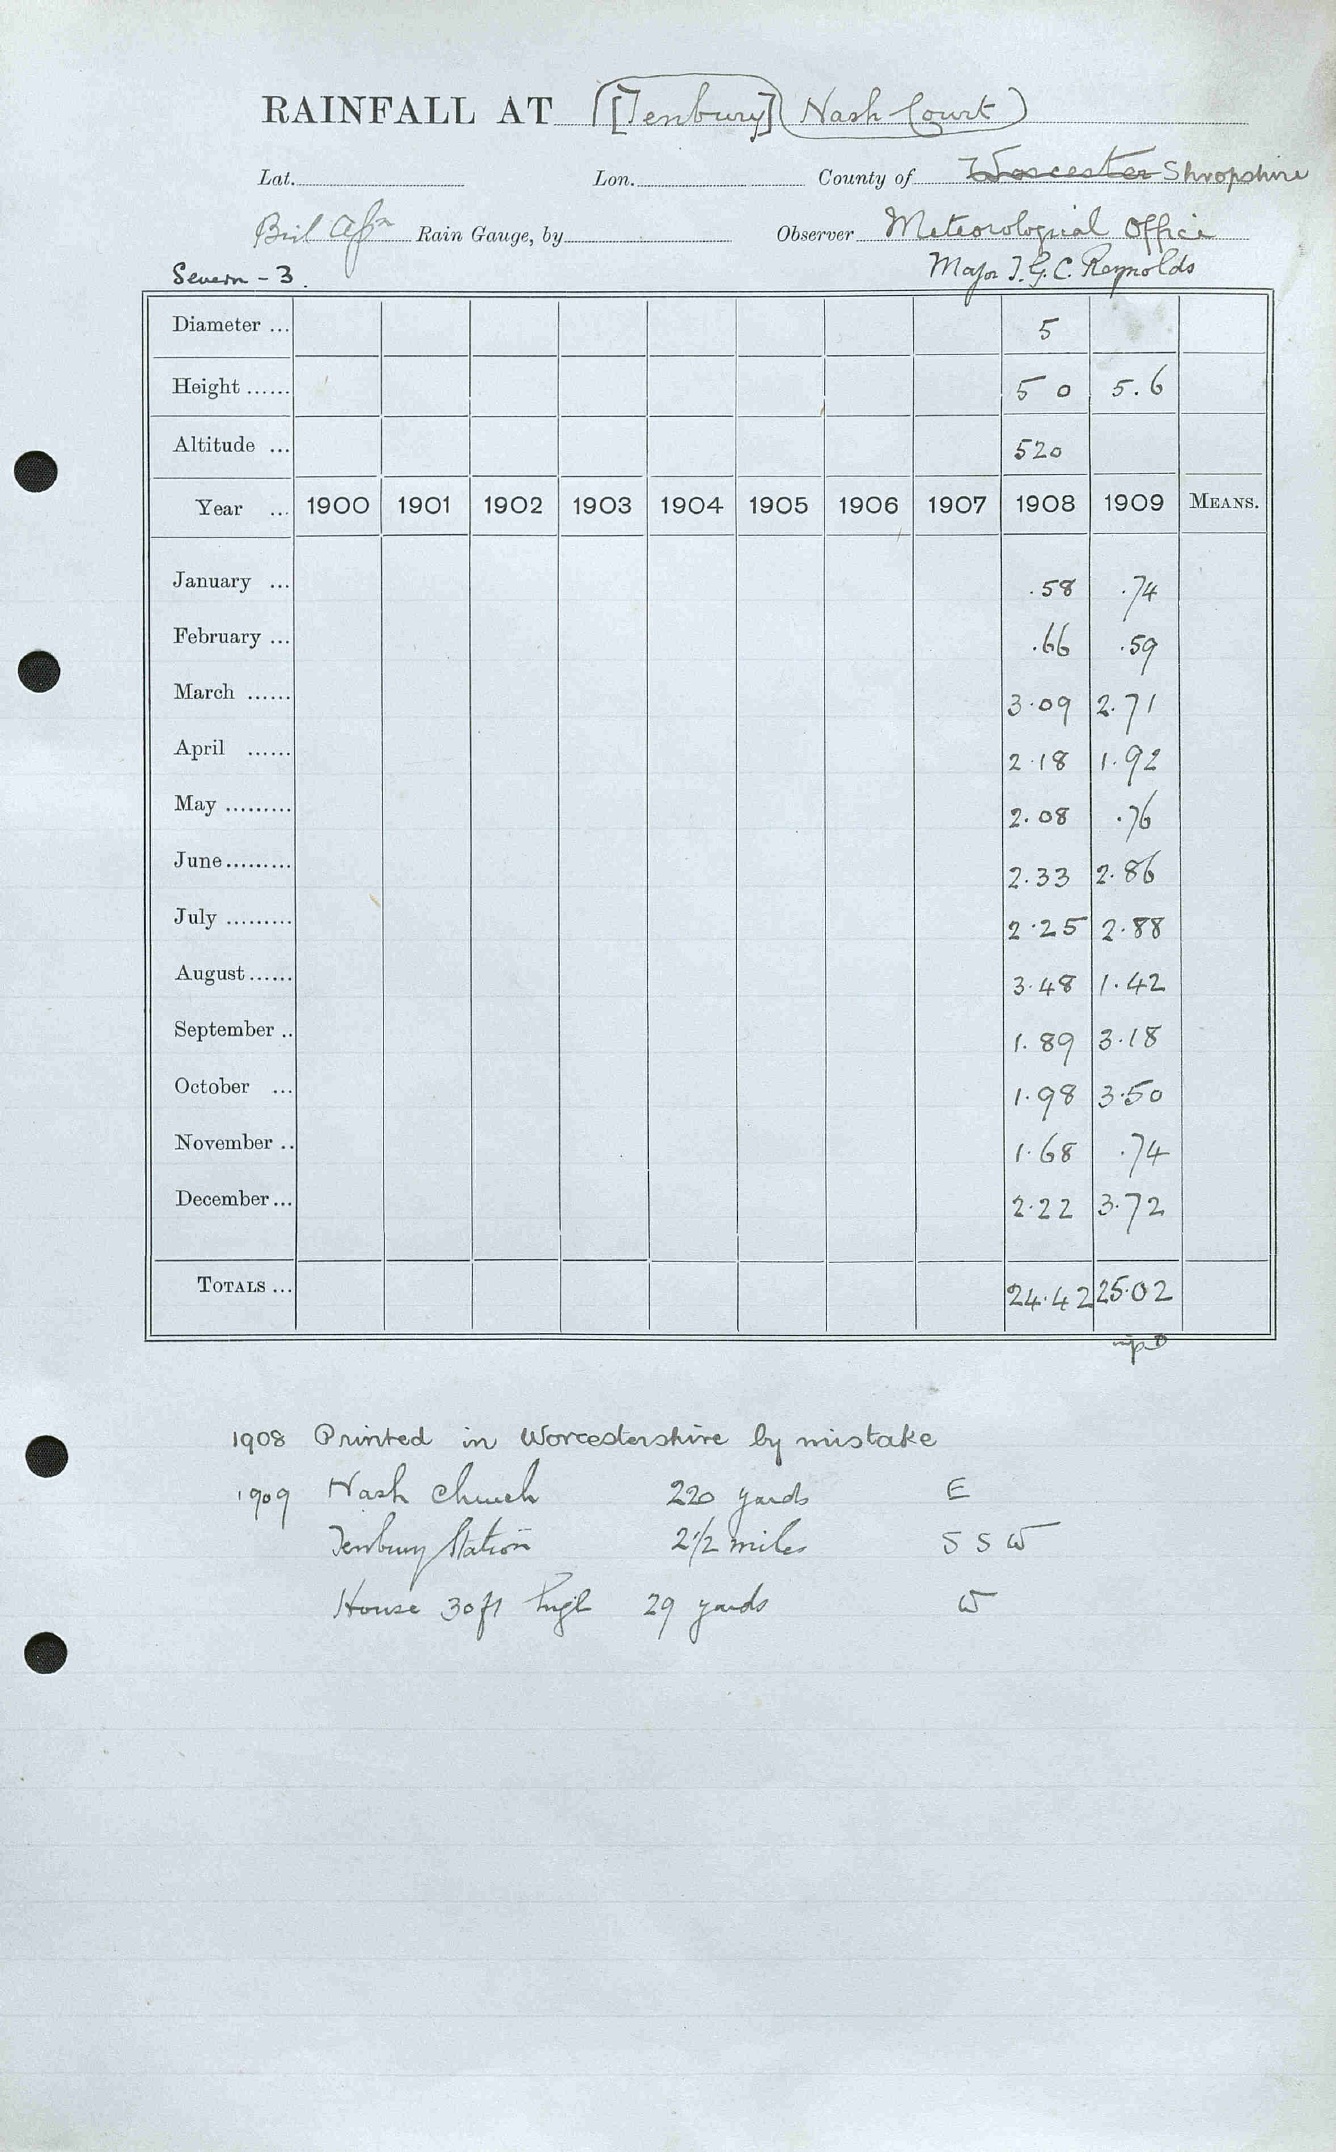 RAINFALL AT [Tenbury] (Nash Court)
Lat. Lon. County of Worcester Shropshire
Rain Gauge, by Observer Meteorological Office
Severn - 3. Major J.G.C. Reynolds
Diameter ... 5
Height ...... 5 0 5.6
Altitude ... 520
Year ... 1900 1901 1902 1903 1904 1905 1906 1907 1908 1909 MEANS.
January ... .58 .74
February ... .66 .59
March ...... 3.09 2.71
April ...... 2.18 1.92
May ......... 2.08 .76
June ......... 2.33 2.86
July ......... 2.25 2.88
August ...... 3.48 1.42
September .. 1.89 3.18
October ... 1.98 3.50
November .. 1.68 .74
December ... 2.22 3.72
TOTALS ... 24.42 25.02
1908 Printed in Worcestershire by mistake
1909 Nash Church 220 yards E
Tenbury Station 2 1/2 miles S S W
House 30 ft high 29 yards W